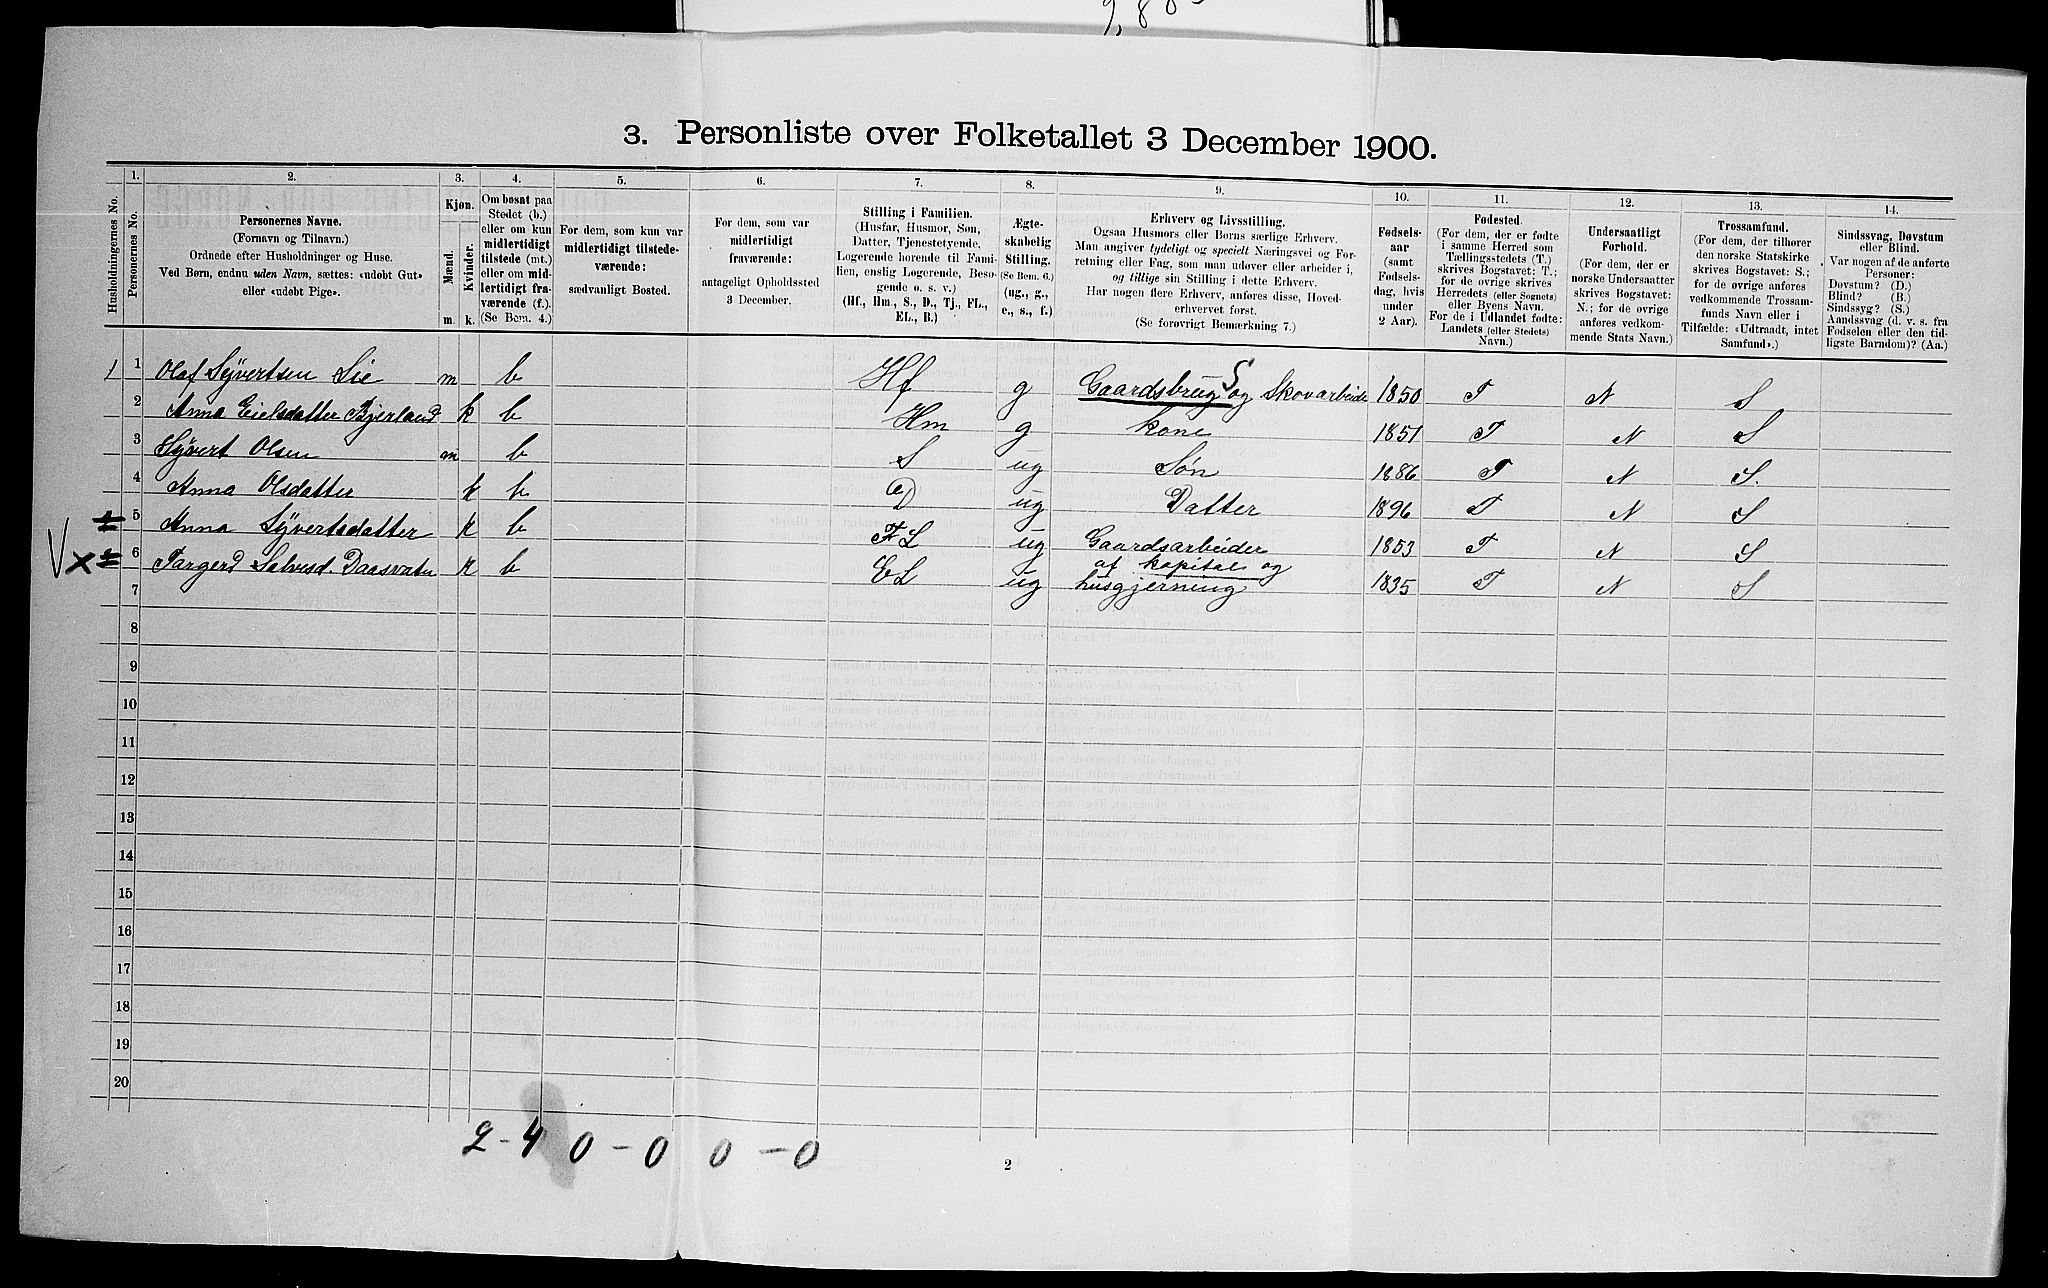 3. Personliste over Folketallet 3 December 1900.
Husholdningernes No.
1.
Personernes No.
2.
Personernes Navne.
(Fornavn og Tilnavn.)
Ordnede efter Husholdninger og Huse.
Ved Børn, endnu uden Navn, sættes: «udøbt Gut»
eller «udøbt Pige».
3.
Kjøn.
Mænd.
Kvinder.
m. k.
4.
Om bosat paa
Stedet (b.)
eller om kun
midlertidigt
tilstede (mt.)
eller om mid-
lertidigt fra-
værende (f.).
(Se Bem. 4.)
5.
For dem, som kun var
midlertidigt tilstede-
værende:
sædvanligt Bosted.
6.
For dem, som var
midlertidigt
fraværende:
antageligt Opholdssted
3 December.
7.
Stilling i Familien.
(Husfar, Husmor, Søn,
Datter, Tjenestetyende,
Logerende hørende til Fami-
lien, enslig Logerende, Beso-
gende o. s. v.)
(Hf., Hm., S., D., Tj., FL.,
EL., B.)
8.
Ægte-
skabelig
Stilling.
(Se Bem. 6.)
(ug., g.,
e., s., f.)
9.
Erhverv og Livsstilling.
Ogsaa Husmors eller Børns særlige Erhverv.
Man angiver tydeligt og specielt Næringsvei og For-
retning eller Fag, som man udøver eller arbeider i,
og tillige sin Stilling i dette Erhverv.
Har nogen flere Erhverv, anføres disse, Hoved-
erhvervet først.
(Se forøvrigt Bemærkning 7.)
10.
Fødsels-
aar
(samt
Fødsels-
dag, hvis
under
2 Aar).
11.
Fødested.
(For dem, der er fødte
i samme Herred som
Tællingsstedets (T.)
skrives Bogstavet: T.;
for de øvrige skrives
Herredets (eller Sognets)
eller Byens Navn.
For de i Udlandet fødte:
Landets (eller Stedets)
Navn.)
12.
Undersaatligt
Forhold.
(For dem, der er
norske Undersaatter
skrives Bogstavet:
N.; for de øvrige
anføres vedkom-
mende Stats Navn.)
13.
Trossamfund.
(For dem, der tilhører
den norske Statskirke
skrives Bogstavet: S.;
for de øvrige anføres
vedkommende Trossam-
funds Navn eller i
Tilfælde: «Udtraadt, intet
Samfund».)
14.
Sindssvag, Døvstum
eller Blind.
Var nogen af de anførte
Personer:
Døvstum? (D.)
Blind? (B.)
Sindssyg? (S.)
Aandssvag (d. v. s. fra
Fødselen eller den tid-
ligste Barndom)? (Aa.)
1 1 Olaf Syvertsen Lie m b Hf g Gaardsbrug S og Skovarbeide 1850 T N S
2 Anna Eielsdatter Bjerland k b Hm g kone 1851 T N S
3 Syvert Olsen m b S ug Søn 1886 T N S
4 Anna Olsdatter k b D ug Datter 1896 T N S
5 Anna Syvertsdatter k b FL ug Gaardsarbeider 1853 T N S
6 Targerd Salvesd. Daasvatn k b EL ug af kapital og husgjerning 1835 T N S
7
8
9
10
11
12
13
14
15
16
17
18
19
20
2 - 4 0 - 0 0 - 0
2